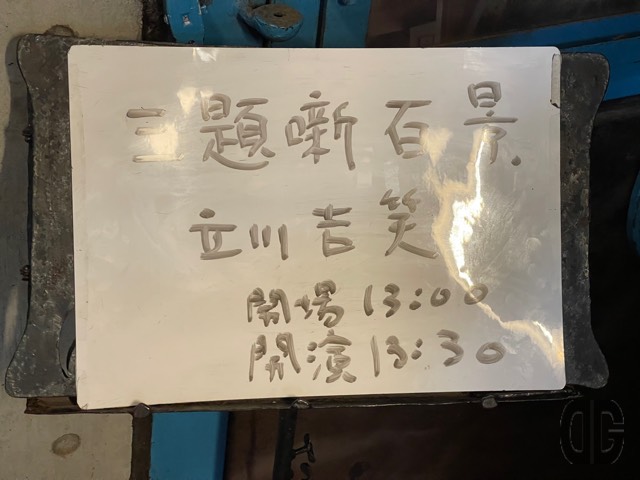 三題噺百景
立川吉笑
開場 13:00
開演 13:30